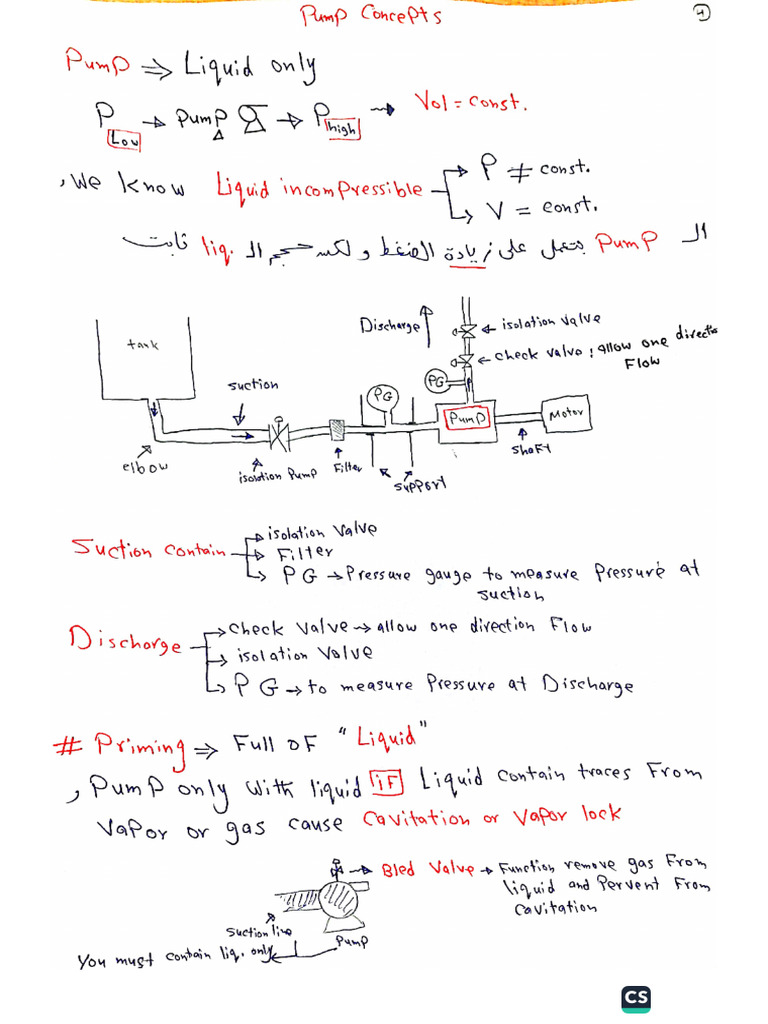 Pump Concepts
Pump ⇒ Liquid only
P Low → Pump → P high → Vol = const.
, We know Liquid incompressible → P ≠ const.
→ V = const.
الـ Pump بتعمل على زيادة الضغط ولكن حجم الـ liq. ثابت
Discharge
isolation valve
check valve; allow one direction
Flow
tank
suction
PG
PG
Pump
Motor
shaft
elbow
isolation Pump
Filter
support
Suction contain → isolation Valve
→ Filter
→ PG → Pressure gauge to measure Pressure at
suction
Discharge → check valve → allow one direction Flow
→ isolation Valve
→ PG → to measure Pressure at Discharge
# Priming ⇒ Full of "Liquid"
, Pump only with liquid if Liquid contain traces From
Vapor or gas cause Cavitation or Vapor lock
→ Bled Valve → Function remove gas From
liquid and Pervent From
Cavitation
Suction line
Pump
You must contain liq. only
CS